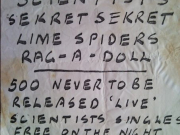 SCIENTISTS
SEKRET SEKRET
LIME SPIDERS
RAG-A-DOLL
500 NEVER TO BE
RELEASED 'LIVE'
SCIENTISTS SINGLES
FREE ON THE NIGHT